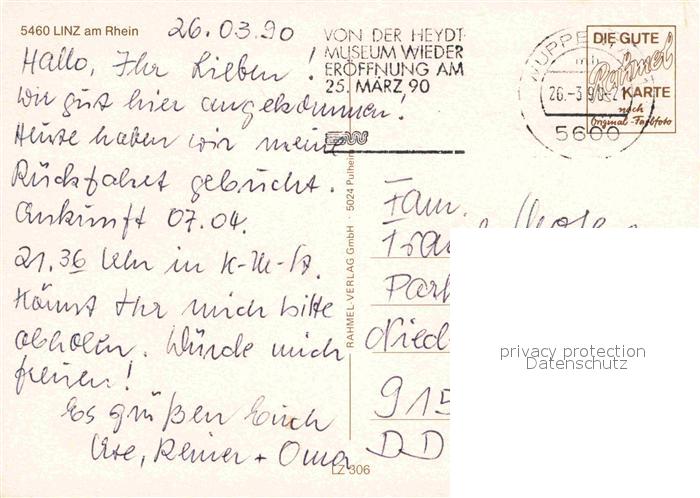 5460 LINZ am Rhein
26.03.90
Hallo, Ihr Lieben!
Wir gut hier angekommen!
Heute haben wir meine
Rückfahrt gebucht.
Ankunft 07.04.
21.36 Uhr in K-M-St.
Könnt Ihr mich bitte
abholen. Würde mich
freuen!
Es grüßen Euch
Ute, Reiner + Oma
VON DER HEYDT-
MUSEUM WIEDER
ERÖFFNUNG AM
25. MÄRZ 90
WUPPE
26.-3.90
5600
DIE GUTE
Rahmel
KARTE
nach
Original-Farbfoto
RAHMEL-VERLAG GmbH · 5024 Pulheim
Fam.
Park
Nied
915
DD
LZ 306
privacy protection
Datenschutz